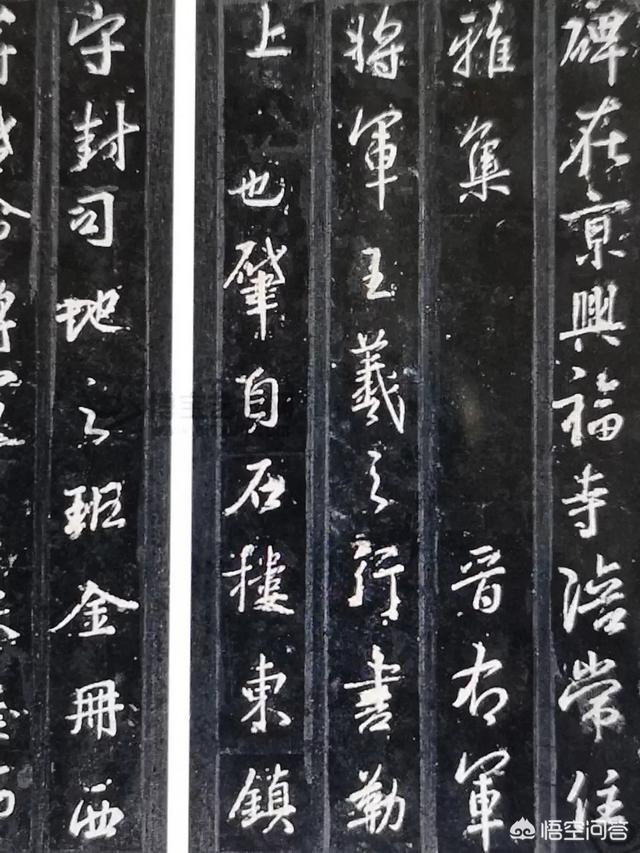 碑在京興福寺陪常住
雅集 晉右軍
將軍王羲之行書勒
上 也肇自石樓東鎮
守封司地之班金冊西
悟空问答